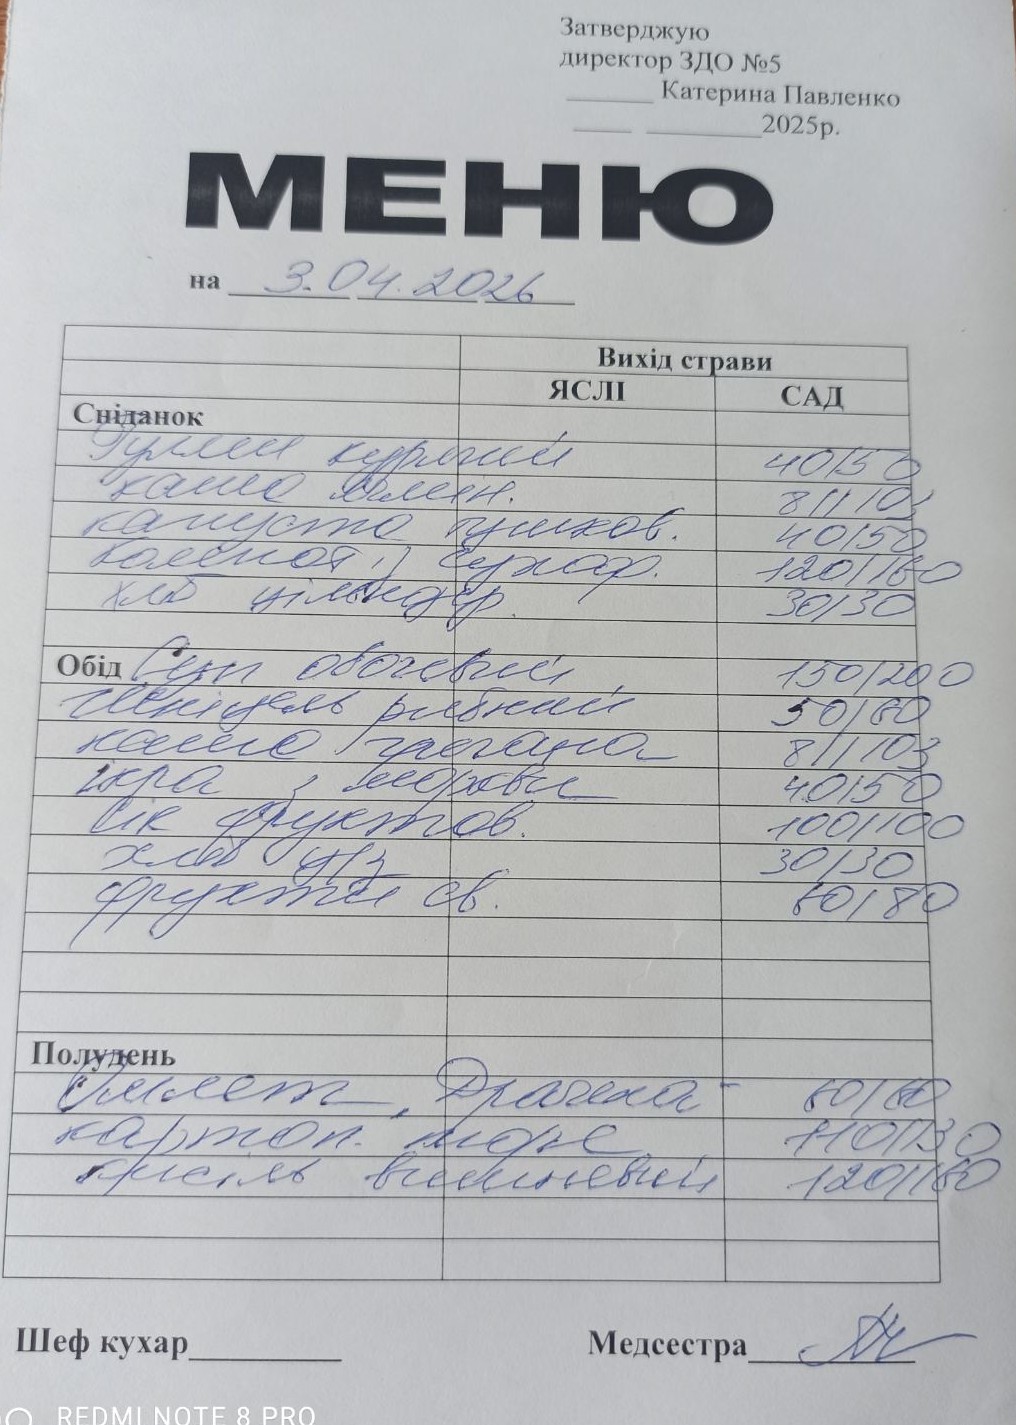 Затверджую
директор ЗДО №5
______ Катерина Павленко
____ ________2025р.
МЕНЮ
на 3.04.2026
Вихід страви
ЯСЛІ САД
Сніданок
Гуляш курячий 40/50
каша ячмін. 81/103
капуста тушков. 40/50
компот із сухоф. 120/160
хліб цільнозер. 30/30
Обід Суп овочевий 150/200
Шніцель рибний 50/60
каша гречана 81/103
ікра з моркви 40/50
сік фруктов. 100/100
хліб ц/з 30/30
фрукти св. 60/80
Полудень
Омлет, Драчена - 60/80
картоп. пюре 110/130
кисіль вишневий 120/160
Шеф кухар_________ Медсестра_________
REDMI NOTE 8 PRO